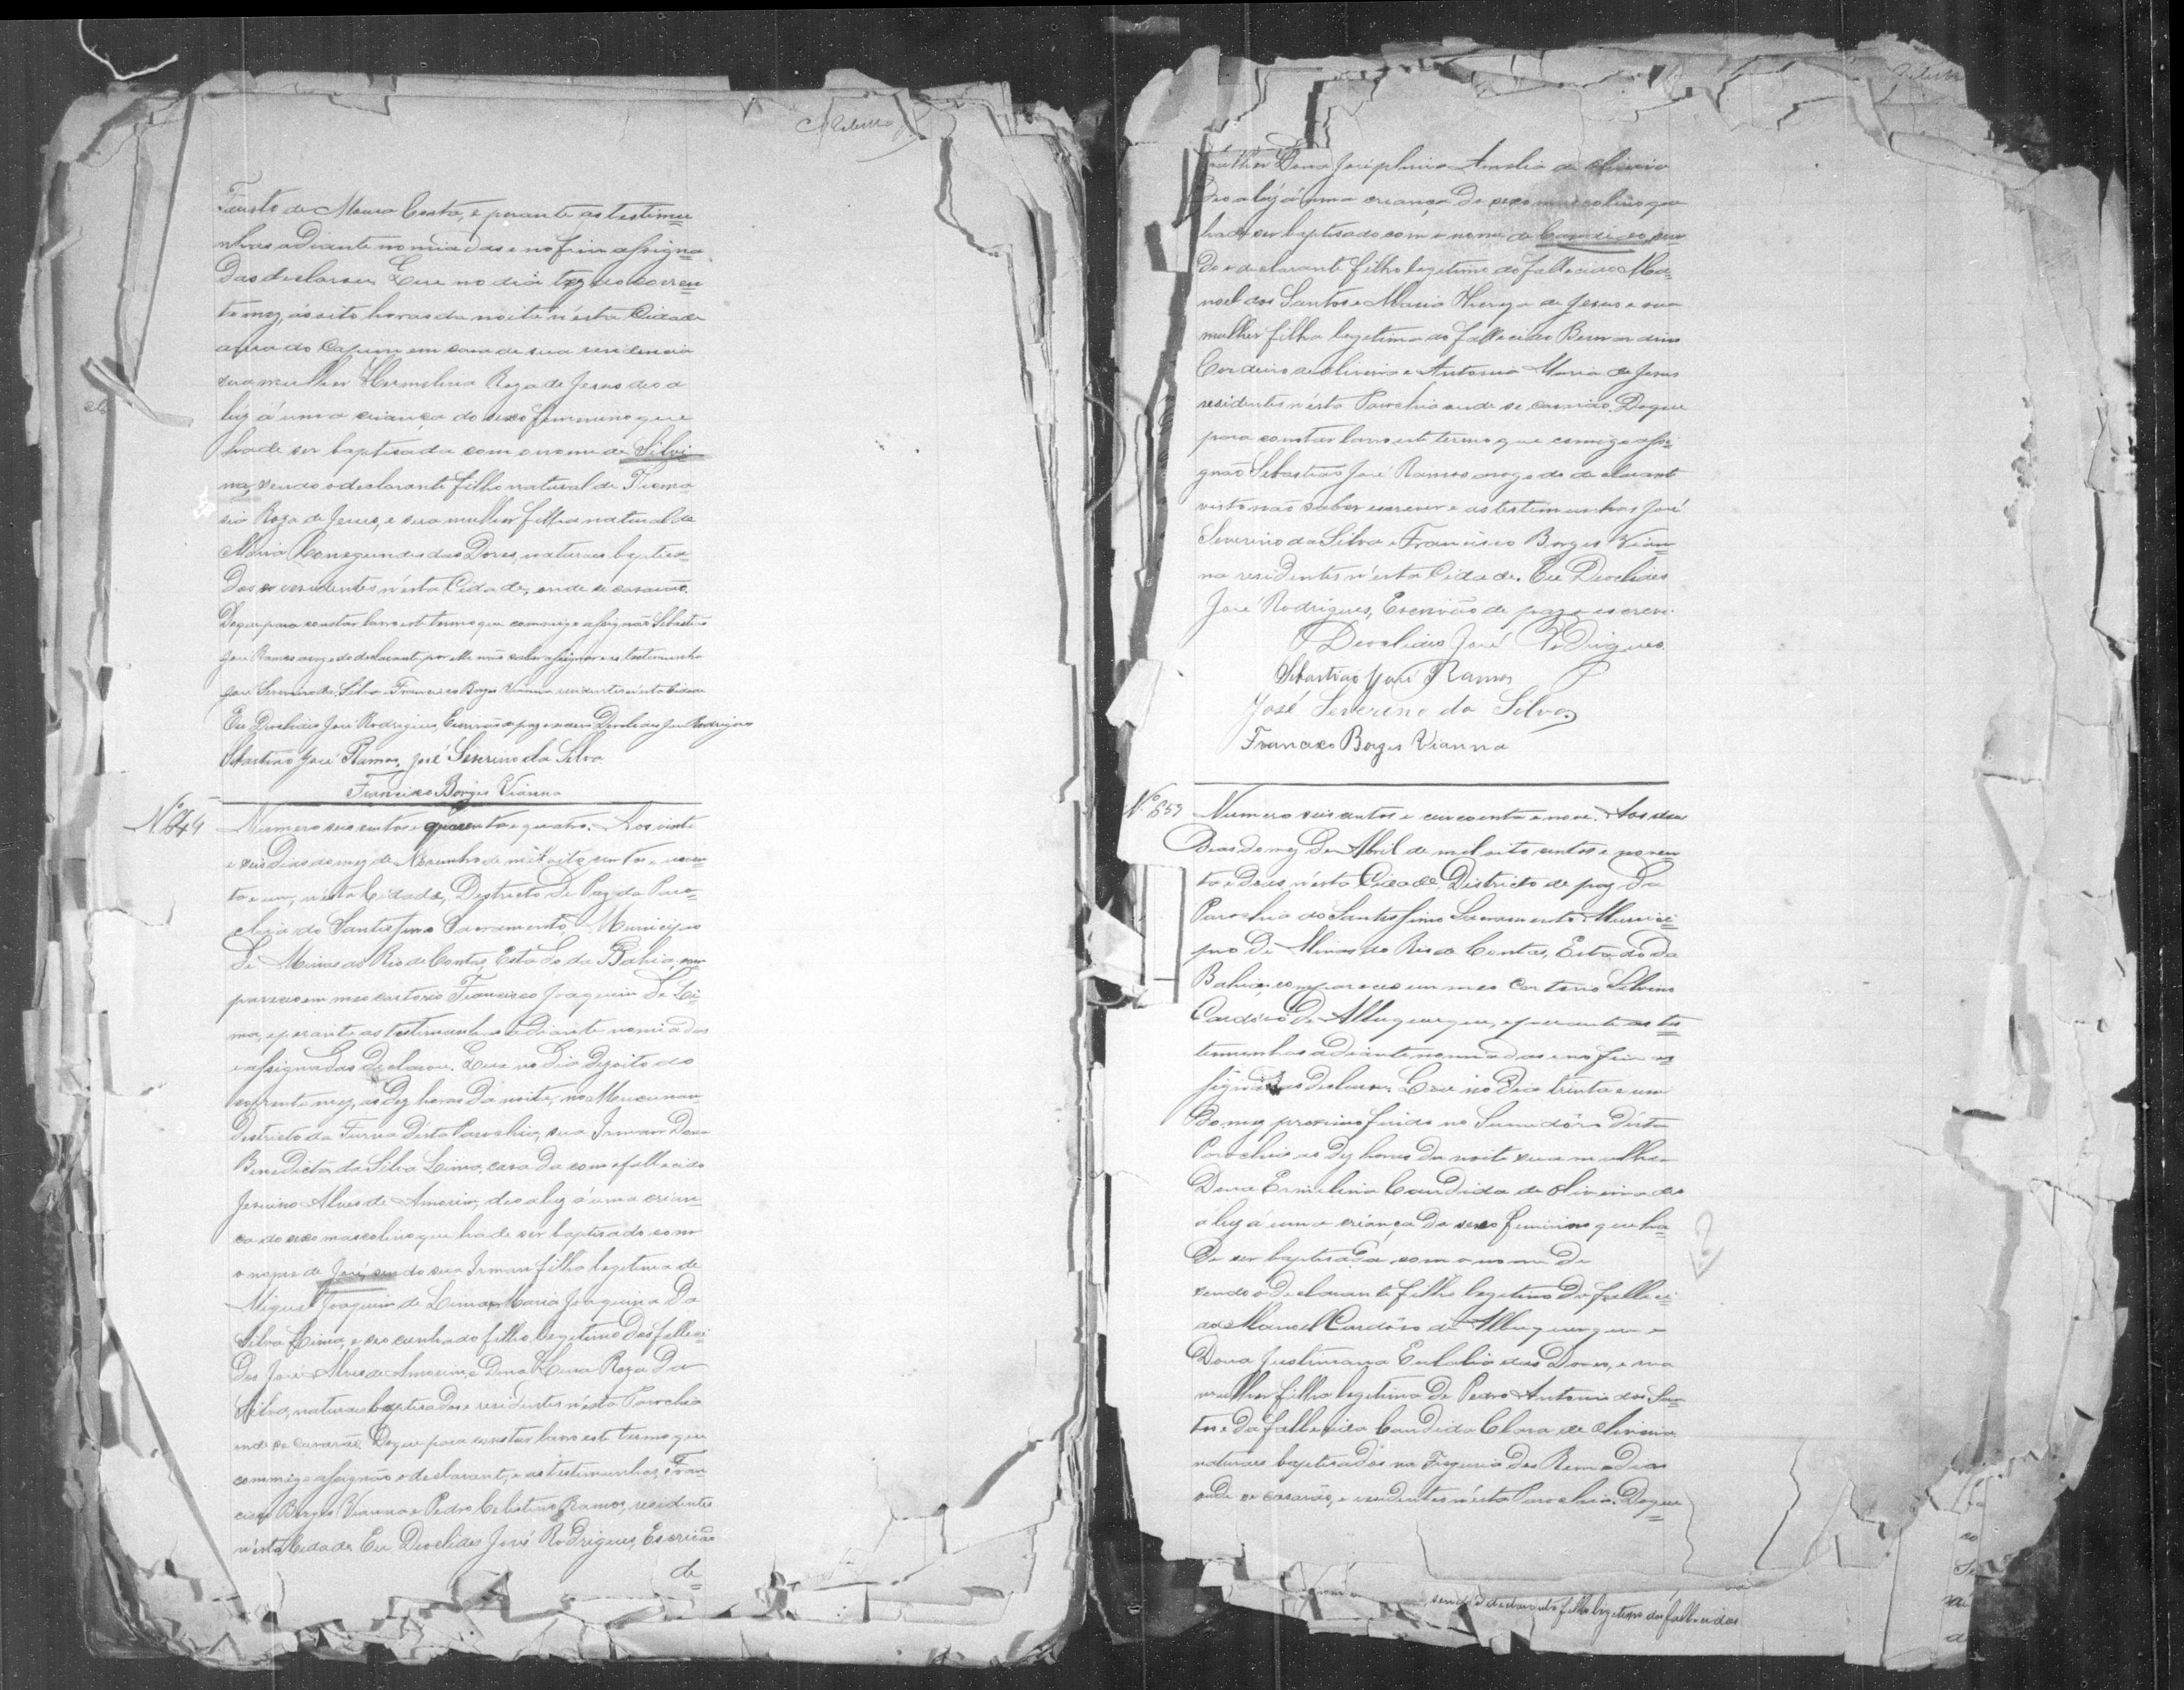 Fausto de Moura Costa, e perante as testimu
nhas adiante nomiadas e no fim assigna
das declarou Que no dia trez do corren
te mez, ás oito horas da noite n'esta Cidade
do Capim em casa de sua residencia
sua mulher Hermelina Roza de Jesus deo a
luz á uma criança do sexo femenino que
hade ser baptisada com o nome de Silvi
na, sendo o declarante filho natural de
Roza de Jesus, e sua mulher filha natural de
Maria Conegundes das Dores, naturaes baptisa
dos e residentes n'esta Cidade, onde se casarão.
Do que para constar lavro este termo que commigo assignão Sebastião
José Ramos a rogo do declarante por elle não saber assignar e as testimunhas
José Severino da Silva e Francisco Borges Vianna residentes n'esta Cidade
Eu Deoclides José Rodrigues, Escrivão de paz o escrevi Deoclides José Rodrigues
Sebastião José Ramos, José Severino da Silva
Francisco Borges Vianna
Nº 644
Numero seis centos e quarenta e quatro. Aos vinte
e seis dias do mez de de mil oito centos e noven
ta e um, n'esta Cidade, Districto de Paz da Paro
chia do Santissimo Sacramento, Municipio
de Minas do Rio de Contas, Estado da Bahia, com
pareceo em meo cartorio Francisco Joaquim de Li
ma, e perante as testimunhas adiante nomiadas
e assignadas declarou. Que no dia dezoito do
corrente mez, as dez horas da noite, no
Districto da Furna d'esta Parochia, sua Irman Dona
Benedicta da Silva Lima, casada com o fallecido
Jesuino Alves de Amorim, deo a luz á uma crian
ca do sexo mascolino que hade ser baptisado com
o nome de José, sendo sua Irman filha legitima de
Miguel Joaquim de Lima e Maria Joaquina da
Silva Lima, e seo cunhado filho legitimo dos falleci
dos José Alves de Amorim, e Dona Roza da
Silva, naturaes baptisados e residentes n'esta Parochia
onde se casarão. Do que para constar lavro este termo que
commigo assignão o declarante, e as testimunhas, Fran
cisco Borges Vianna e Pedro Celestino Ramos, residentes
n'esta Cidade. Eu Deoclides José Rodrigues, Escrivão
de
mulher Dona Josephina Amelia de Oliveira
deo a luz á uma criança do sexo mascolino que
hade ser baptisado com o nome de sen
do o declarante filho legitimo do fallecido Ma
noel dos Santos e Maria Thereza de Jesus e sua
mulher filha legitima do fallecido Bernardino
Cordeiro de Oliveira e Antonia Maria de Jesus
residentes n'esta Parochia onde se casarão. Do que
para constar lavro este termo que comigo assi
gnão Sebastião José Ramos a rogo do declarante
visto não saber escrever e as testimunhas José
Severino da Silva e Francisco Borges Vian
na residentes n'esta Cidade. Eu Deoclides
José Rodrigues, Escrivão de paz o escrevi.
Deoclides José Rodrigues
Sebastião José Ramos
José Severino da Silva
Francisco Borges Vianna
Nº 659
Numero seis centos e cincoenta e nove. Aos dous
dias do mez de Abril de mil oito centos e noven
ta e dous, n'esta Cidade, Districto de paz da
Parochia do Santissimo Sacramento Munici
pio de Minas do Rio de Contas, Estado da
Bahia, compareceo em meo Cartorio Silvino
Cardôso de Albuquerque, e perante as tes
temunhas adiante nomiadas e no fim as
signadas declarou. Que no dia trinta e um
do mez proximo findo no Sumidôro d'esta
Parochia as dez horas da noite sua mulher
Dona Ermelina Candida de Oliveira deo
á luz á uma criança do sexo feminino que ha
de ser baptisada com o nome de
sendo o declarante filho legitimo do falleci
do Manoel Cardôso de Albuquerque e
Dona Justiniana Eulalia das Dores, e sua
mulher filha legitima de Pedro Antonio dos San
tos e da fallecida Candida Clara de Oliveira
naturaes baptisados na Freguezia dos Remedios
onde se casarão, e residentes n'esta Parochia. Do que
sendo o declarante filho legitimo dos fallecidos